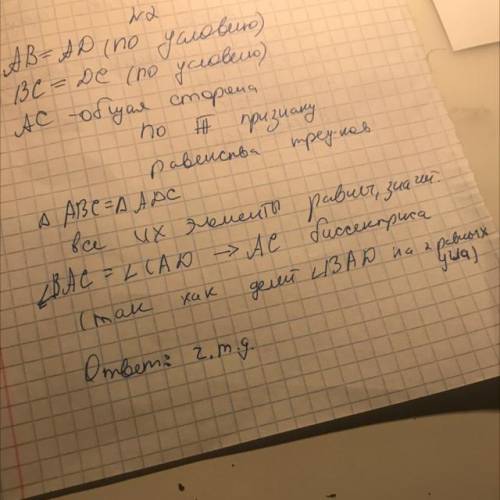 №2
AB = AD (по условию)
BC = DC (по условию)
AC - общая сторона
по III признаку
равенства треу-ков
△ ABC = △ ADC
все их элементы равны, значит.
∠BAC = ∠CAD → AC биссектриса
(так как делит ∠BAD на 2 равных
угла)
Ответ: ч.т.д.